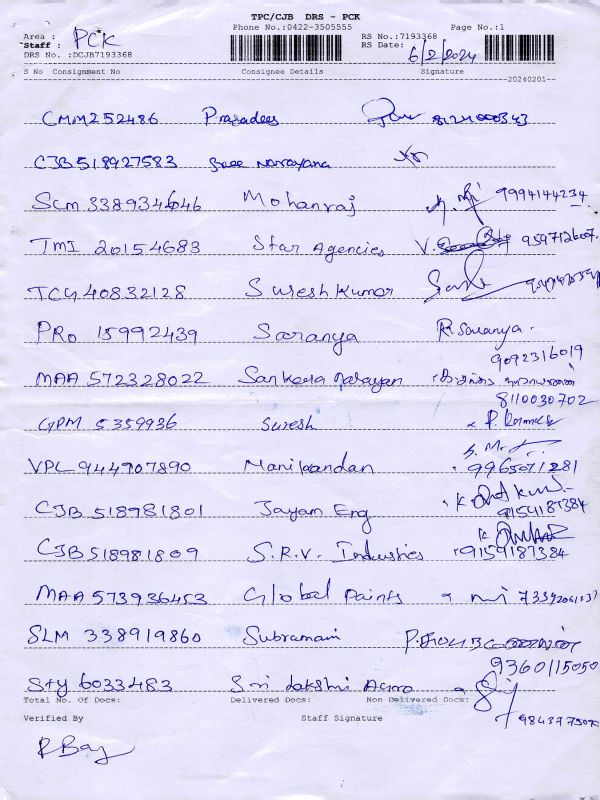 TPC/CJB DRS - PCK
Phone No.:0422-3505555 Page No.:1
Area : PCK RS No.:7193368
Staff : RS Date: 6/2/2024
DRS No. :DCJB7193368
S No Consignment No Consignee Details Signature
20240201
CMM252486 Prasadees 8124000343
CJB518927583 Sree Narayana
SLM 338934646 Mohanraj 9994144234
TMI 20154683 Star Agencies V.
TCG 40832128 Suresh Kumar
PRO 15992439 Saranya R. Saranya.
9092316019
MAA 572328022 Sankara Narayan
8110030702
GPM 5359936 Suresh
VPL 944707890 Manikandan 9965071281
CJB 518981801 Jayam Eng 9159187384
CJB 518981809 S.R.V. Industries 9159187384
MAA 573936453 Global Paints
SLM 338919860 Subramani
9360115050
Sty 6033483 Sri Lakshmi Agro
Total No. Of Docs: Delivered Docs: Non Delivered Docs:
Verified By Staff Signature